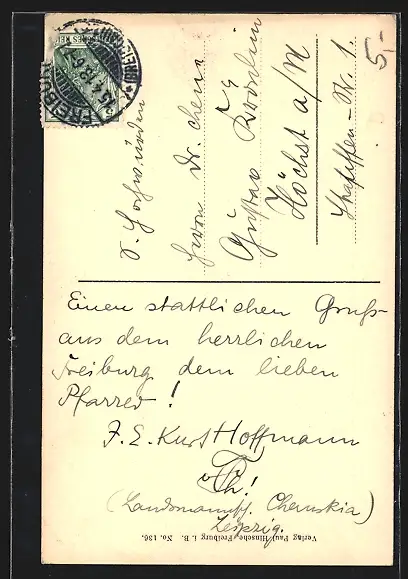 FREIBURG
(BREISGAU)
5,-
S. Hochwürden
Herrn Dr. chem.
Gustav
Höchst a/M
Einen stattlichen Gruß
aus dem herrlichen
Freiburg dem lieben
Pfarrer!
J. E. Kurt Hoffmann
(Landsmannsch. Cheruskia)
Leipzig.
Verlag Paul Hinsche, Freiburg i. B. No. 136.